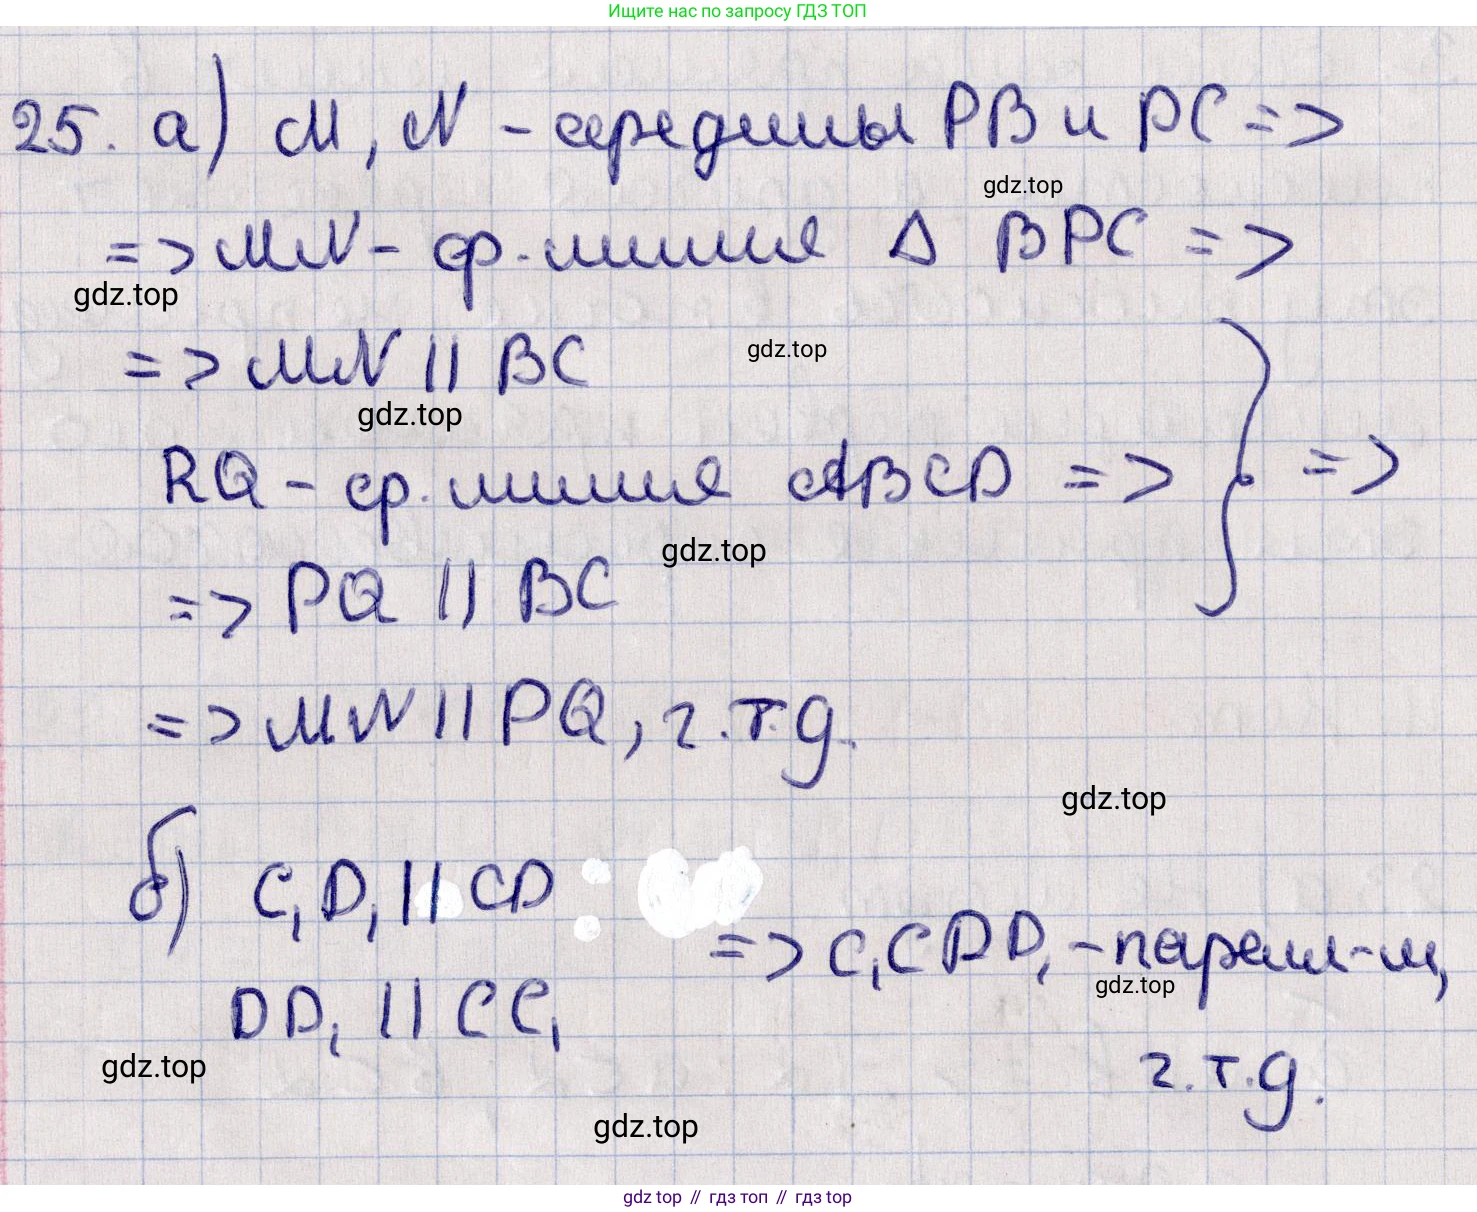 Ищите нас по запросу ГДЗ ТОП
25. а) M, N - середины PB и PC =>
gdz.top
=> MN - ср. линия Δ BPC =>
gdz.top
=> MN || BC
gdz.top
gdz.top
RQ - ср. линия ABCD => } =>
gdz.top
=> PQ || BC
=> MN || PQ, ч.т.д.
gdz.top
б) C₁D₁ || CD
=> C₁CDD₁ - паралл-м,
gdz.top
DD₁ || CC₁
gdz.top
ч.т.д.
gdz.top
gdz top // гдз топ // гдз top